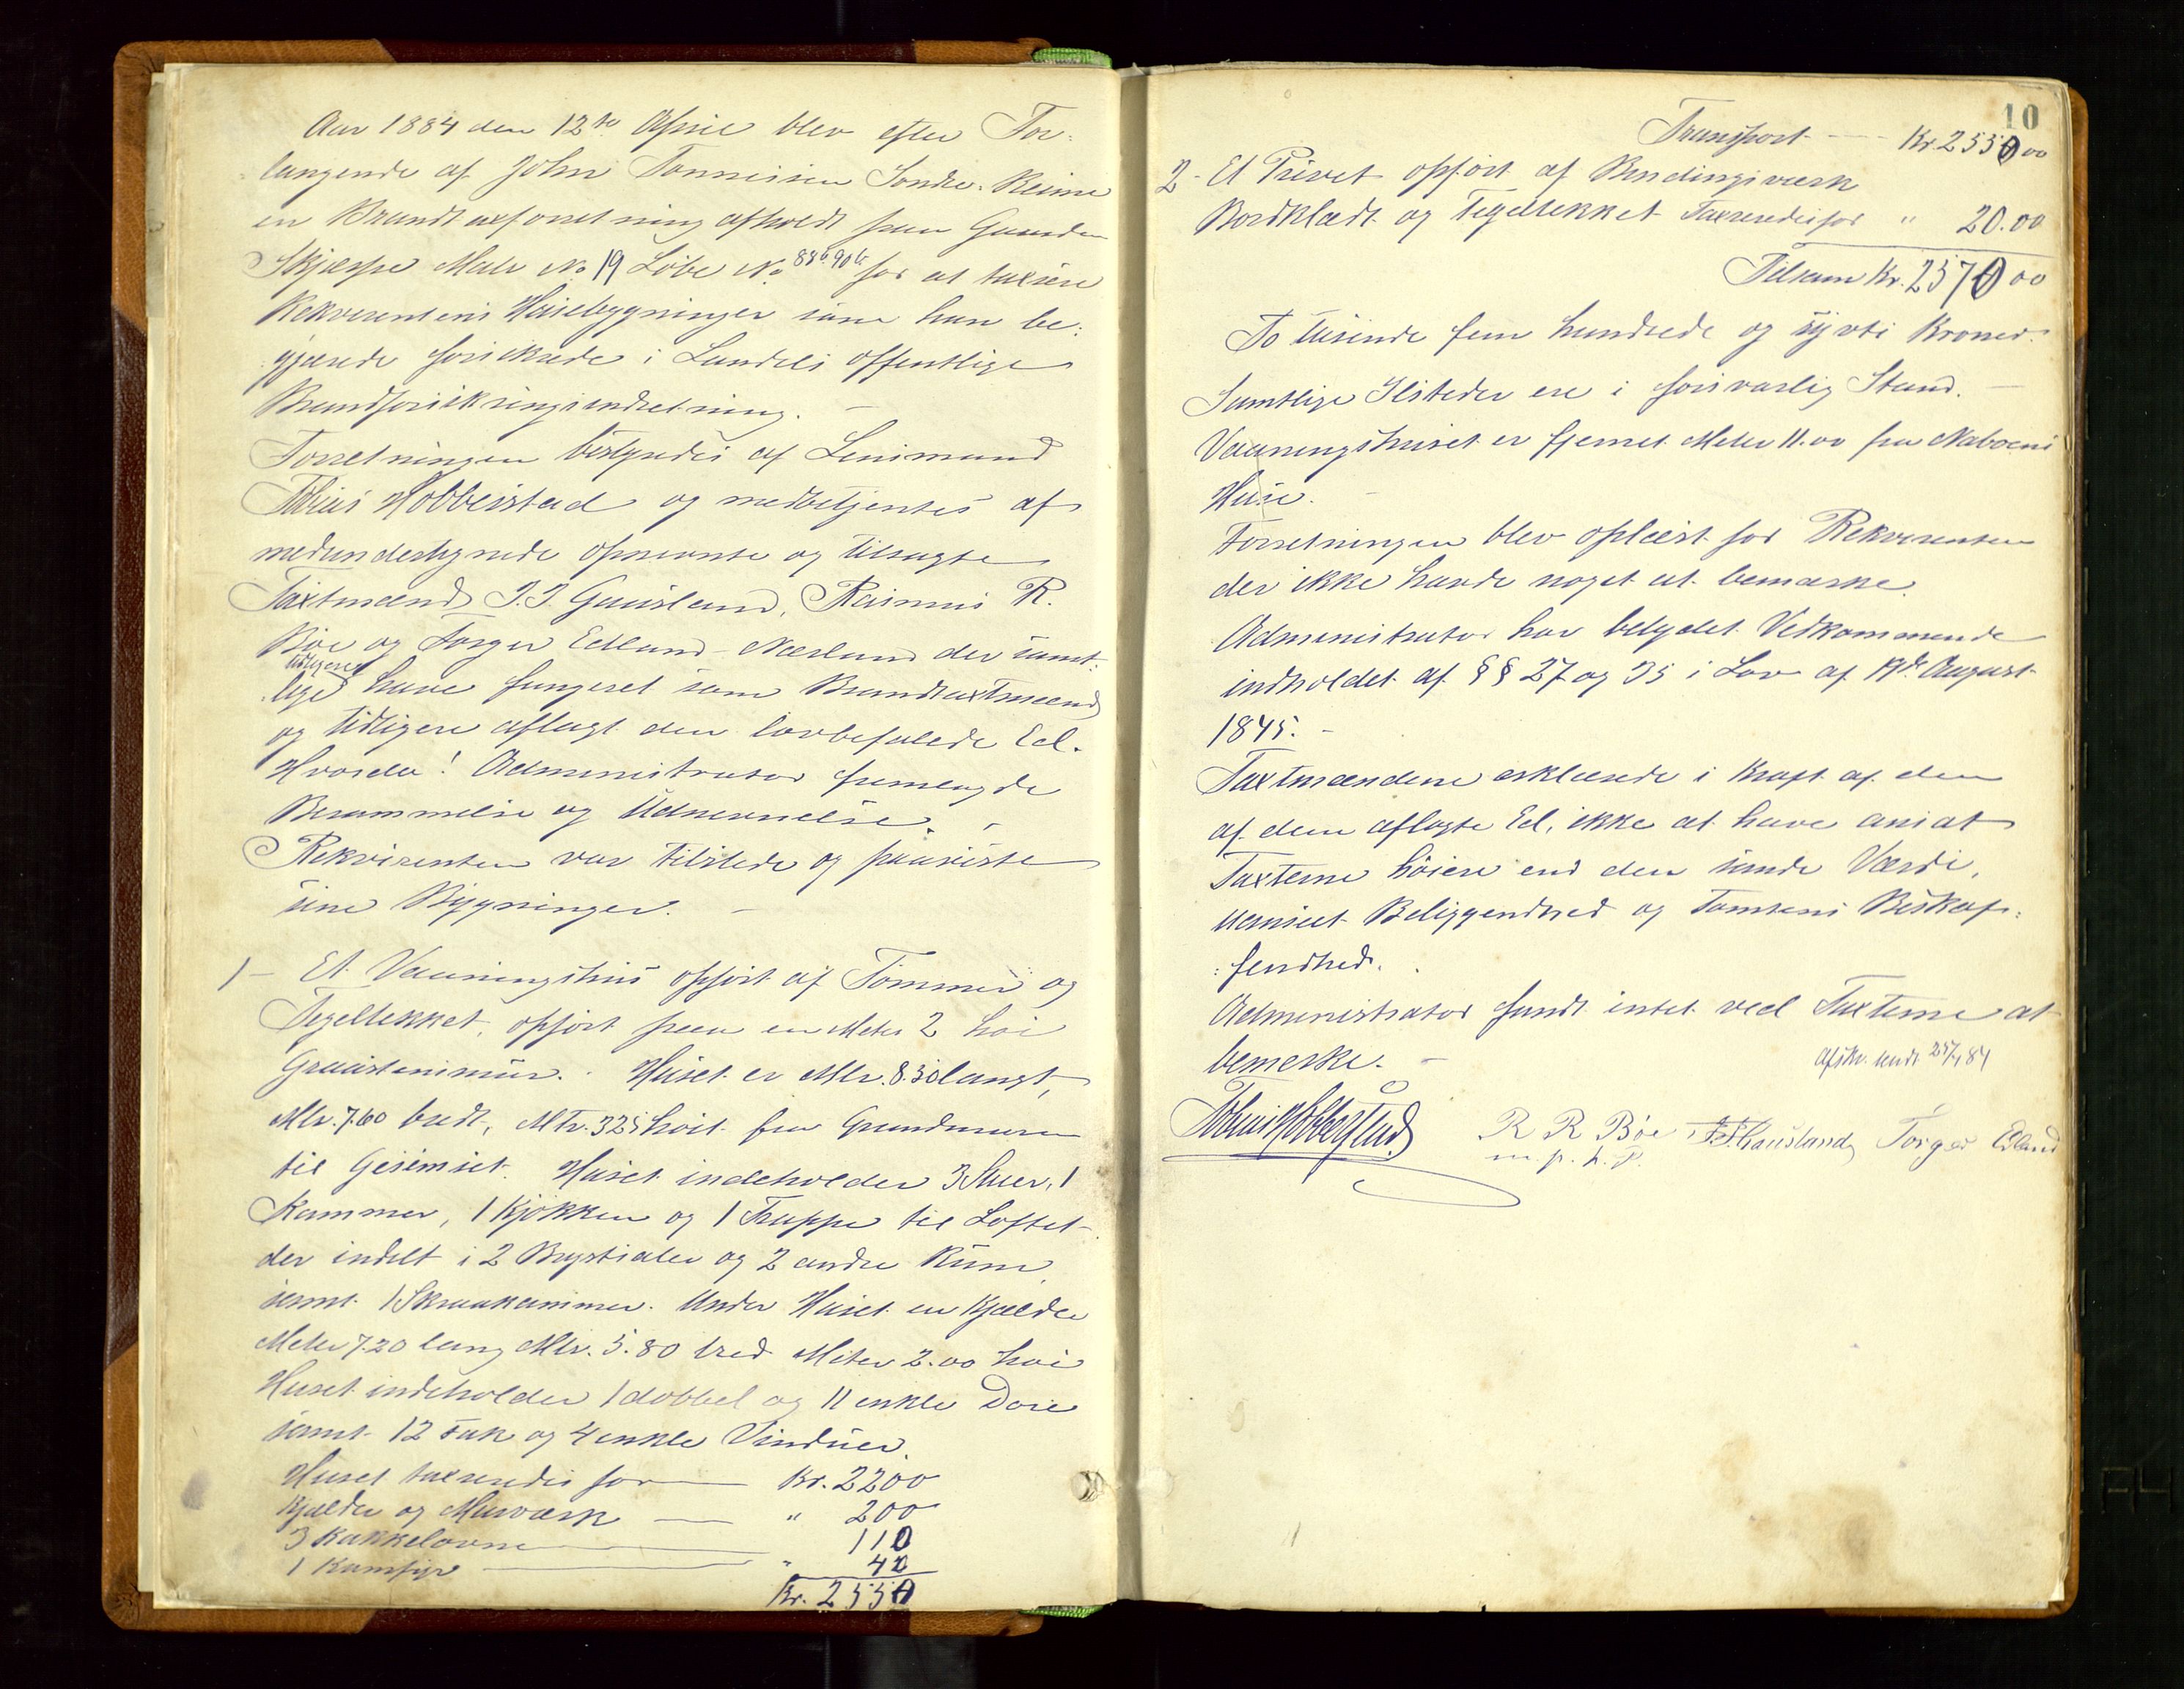 Aar 1884 den 12te April blev efter For-
langende af John Tønnesen Søndre-Reime
en Brandtaxforretning afholdt paa Gaarden
Skjærpe Matr No 19 Løbe No 88b 90b for at taxere
Rekvirentens Husebygninger som han be-
gjærede forsikrede i Landets offentlige
Brandforsikringsindretning. -
Forretningen bestyredes af Lensmand
Tobias Hobberstad og medbetjentes af
medunderskrevne opnævnte og tilsagte
Taxtmænd J. J. Gausland, Rasmus R.
Bøe og Torger Edland-Nærland der samt-
tidligere
lige have fungeret som Brandtaxtmænd
og tidligere aflagt den lovbefalede Ed.
Hvorda! Administrator fremlagde
Berammelse og Udnævnelse. -
Rekvirenten var tilstede og paaviste
sine Bygninger. -
1 - Et Vaaningshus opført af Tømmer og
Tegeltekket, opført paa en Meter 2 høi
Graastensmur. Huset er Mtr. 8.30 langt,
Mtr. 7.60 bredt, Mtr. 325 høit fra Grundmuren
til Gesimset. Huset indeholder 3 Stuer, 1
Kammer, 1 Kjøkken og 1 Trappe til Loftet
der indelt i 2 Brystsaler og 2 andre Rum,
samt 1 Skraakammer. Under Huset en Kjælder
Meter 7.20 lang Mtr. 5.80 bred Meter 2.00 høi
Huset indeholder 1 dobbel og 11 enkle Døre
samt 12 Fak og 4 enkle Vinduer.
Huset taxeredes for — Kr. 2200
Kjælder og Murværk — " 200
3 Kakkelovne — 110
1 Komfyr — " 40
Kr. 2550
10
Transport — Kr. 2550 00
2 - Et Privet opført af Bindingsværk
Bordklædt og Tegeltekket Taxeredes for " 20.00
Tilsam Kr. 2570 00
To tusinde fem hundrede og sytti Kroner.
Samtlige Ilsteder ere i forsvarlig Stand. -
Vaaningshuset er fjernet Meter 11.00 fra Naboens
Huse. -
Forretningen blev oplæst for Rekvirenten
der ikke havde noget at bemærke.
Administrator har betydet Vedkommende
indholdet af §§ 27 og 35 i Lov af 19de August
1845. -
Taxtmændene erklærede i Kraft af den
af dem aflagte Ed, ikke at have ansat
Taxterne høiere end den sande Værdi,
uanseet Beliggenhed og Tomtens Beskaf-
fenhed.
Administrator fandt intet ved Taxterne at
bemerke. -
Afskr. sendt 25/4 84
Tobias Hobberstad R R Bøe J. J. Gausland Torger Edland
m. p. h. P.